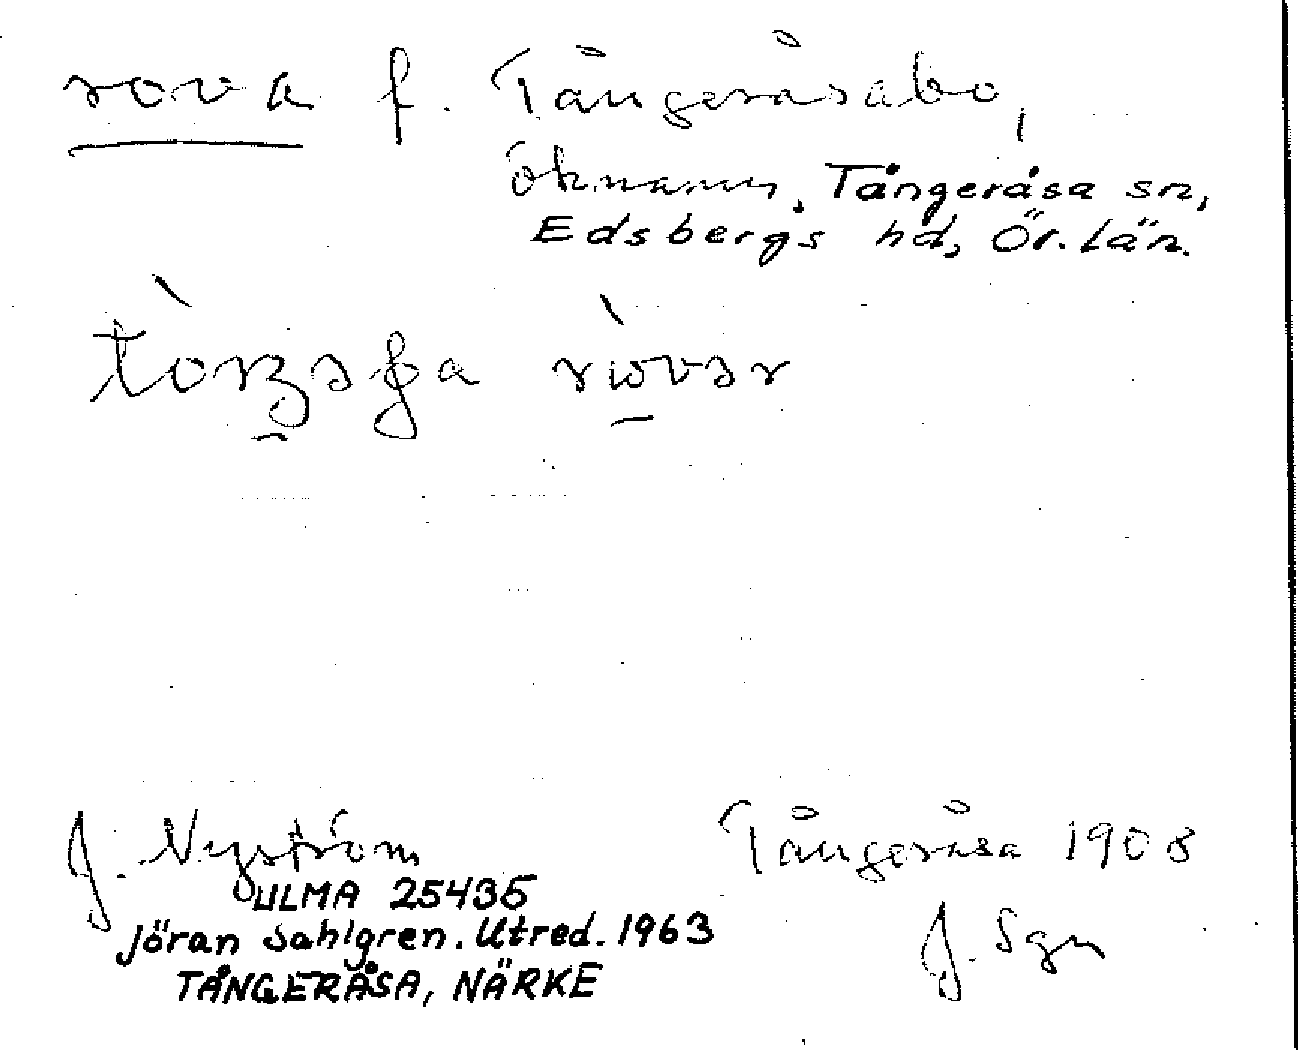 rova f. Tångeråsabo,
öknamn, Tångeråsa sn,
Edsbergs hd, Ör. län.
J. Nyström Tångeråsa 1908
ULMA 25435 J. Sgn
Jöran Sahlgren. Utred. 1963
TÅNGERÅSA, NÄRKE